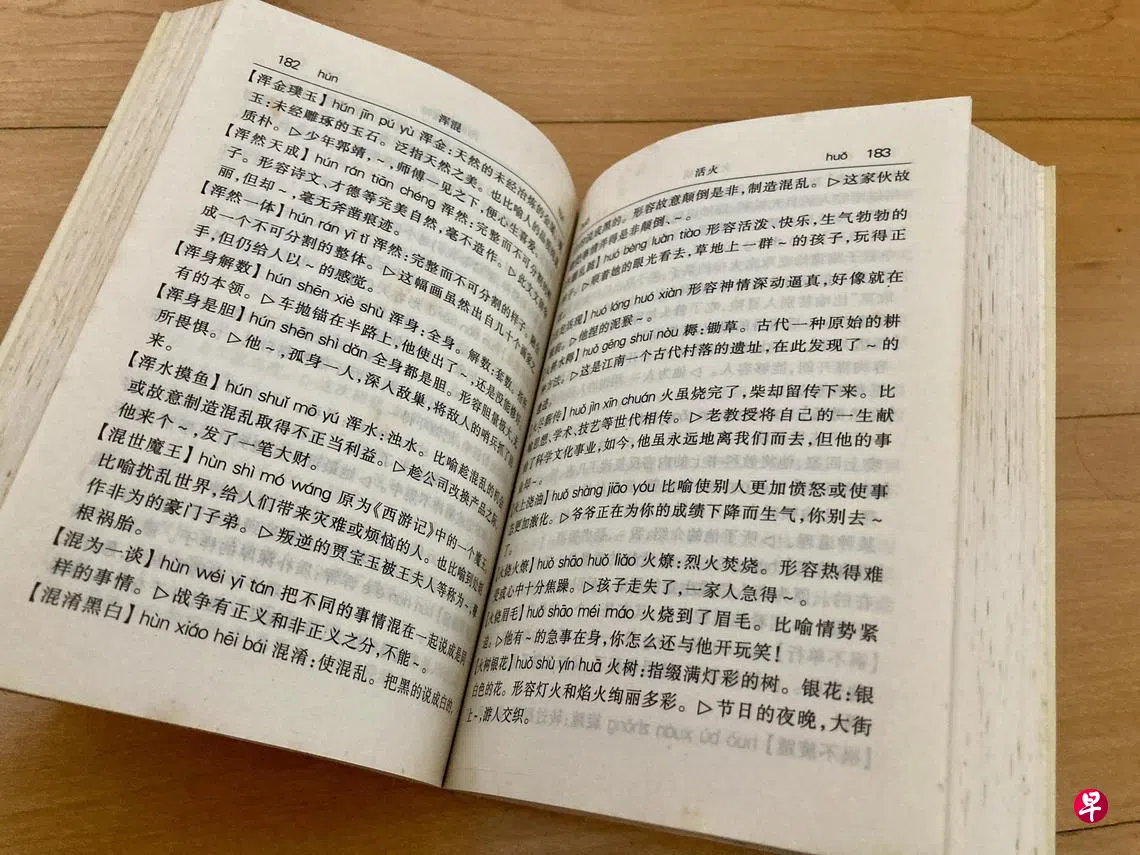 182 hún
浑混
【浑金璞玉】hún jīn pú yù 浑金:天然的未经冶炼的金
玉:未经雕琢的玉石。泛指天然之美。也比喻人的
质朴。▷少年郭靖,~,师傅一见之下,便心生喜爱。
【浑然天成】hún rán tiān chéng 浑然:完整而不可分割的样
子。形容诗文、才德等完美自然,毫不造作。▷此
丽,但却~,毫无斧凿痕迹。
【浑然一体】hún rán yī tǐ 浑然:完整而不可分割的样子。
成一个不可分割的整体。▷这幅画虽然出自几十个画家之
手,但仍给人以~的感觉。
【浑身解数】hún shēn xiè shù 浑身:全身。解数:套数。
有的本领。▷车抛锚在半路上,他使出了~,还是没能
【浑身是胆】hún shēn shì dǎn 全身都是胆。形容胆量极大,无
所畏惧。▷他~,孤身一人,深入敌巢,将敌人的哨兵抓了
来。
【浑水摸鱼】hún shuǐ mō yú 浑水:浊水。比喻趁混乱的时候
或故意制造混乱取得不正当利益。▷趁公司改换产品之
他来个~,发了一笔大财。
【混世魔王】hùn shì mó wáng 原为《西游记》中的一个魔王。
比喻扰乱世界,给人们带来灾难或烦恼的人。也比喻到处
作非为的豪门子弟。▷叛逆的贾宝玉被王夫人等称为~、
根祸胎。
【混为一谈】hùn wéi yī tán 把不同的事情混在一起说成是同
样的事情。▷战争有正义和非正义之分,不能~。
【混淆黑白】hùn xiáo hēi bái 混淆:使混乱。把黑的说成白的,
活火
huǒ 183
说成黑的。形容故意颠倒是非,制造混乱。▷这家伙故
事情弄得是非颠倒、~。
huó bèng luàn tiào 形容活泼、快乐,生气勃勃的
▷顺着她的眼光看去,草地上一群~的孩子,玩得正
huó lóng huó xiàn 形容神情深动逼真,好像就在
▷他捏的泥猴~。
huǒ gēng shuǐ nòu 耨:锄草。古代一种原始的耕
方法。▷这是江南一个古代村落的遗址,在此发现了~的
huǒ jìn xīn chuán 火虽烧完了,柴却留传下来。比
思想、学术、技艺等世代相传。▷老教授将自己的一生献
了科学文化事业,如今,他虽永远地离我们而去,但他的事
上浇油】huǒ shàng jiāo yóu 比喻使别人更加愤怒或使事
更加激化。▷爷爷正在为你的成绩下降而生气,你别去~
了。
火烧火燎】huǒ shāo huǒ liǎo 火燎:烈火焚烧。形容热得难
或心中十分焦躁。▷孩子走失了,一家人急得~。
火烧眉毛】huǒ shāo méi máo 火烧到了眉毛。比喻情势紧
迫。▷他有~的急事在身,你怎么还与他开玩笑!
【火树银花】huǒ shù yín huā 火树:指缀满灯彩的树。银花:银
白色的花。形容灯火和焰火绚丽多彩。▷节日的夜晚,大街
上~,游人交织。
早